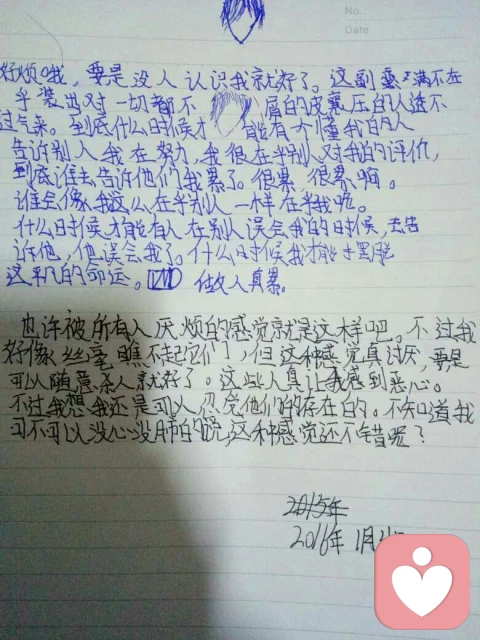 No.
Date
好烦哦，要是没人认识我就好了。这副蛮不在
乎装出对一切都不屑的皮囊压的人透不
过气来。到底什么时候才能有个懂我的人
告诉别人我在努力，我很在乎别人对我的评价，
到底谁去告诉他们我累了。很累，很累啊。
谁会像我这么在乎别人一样在乎我呢。
什么时候才能有人在别人误会我的时候，去告
诉他，他误会我了。什么时候我才能才罢脱
这平凡的命运。做人真累。
也许被所有人厌烦的感觉就是这样吧。不过我
好像丝毫瞧不起它们，但这种感觉真讨厌，要是
可以随意杀人就好了。这些人真让我感到恶心。
不过我想我还是可以忍受他们的存在的。不知道我
可不可以没心没肺的说，这种感觉还不错呢？
2015年
2016年 1月